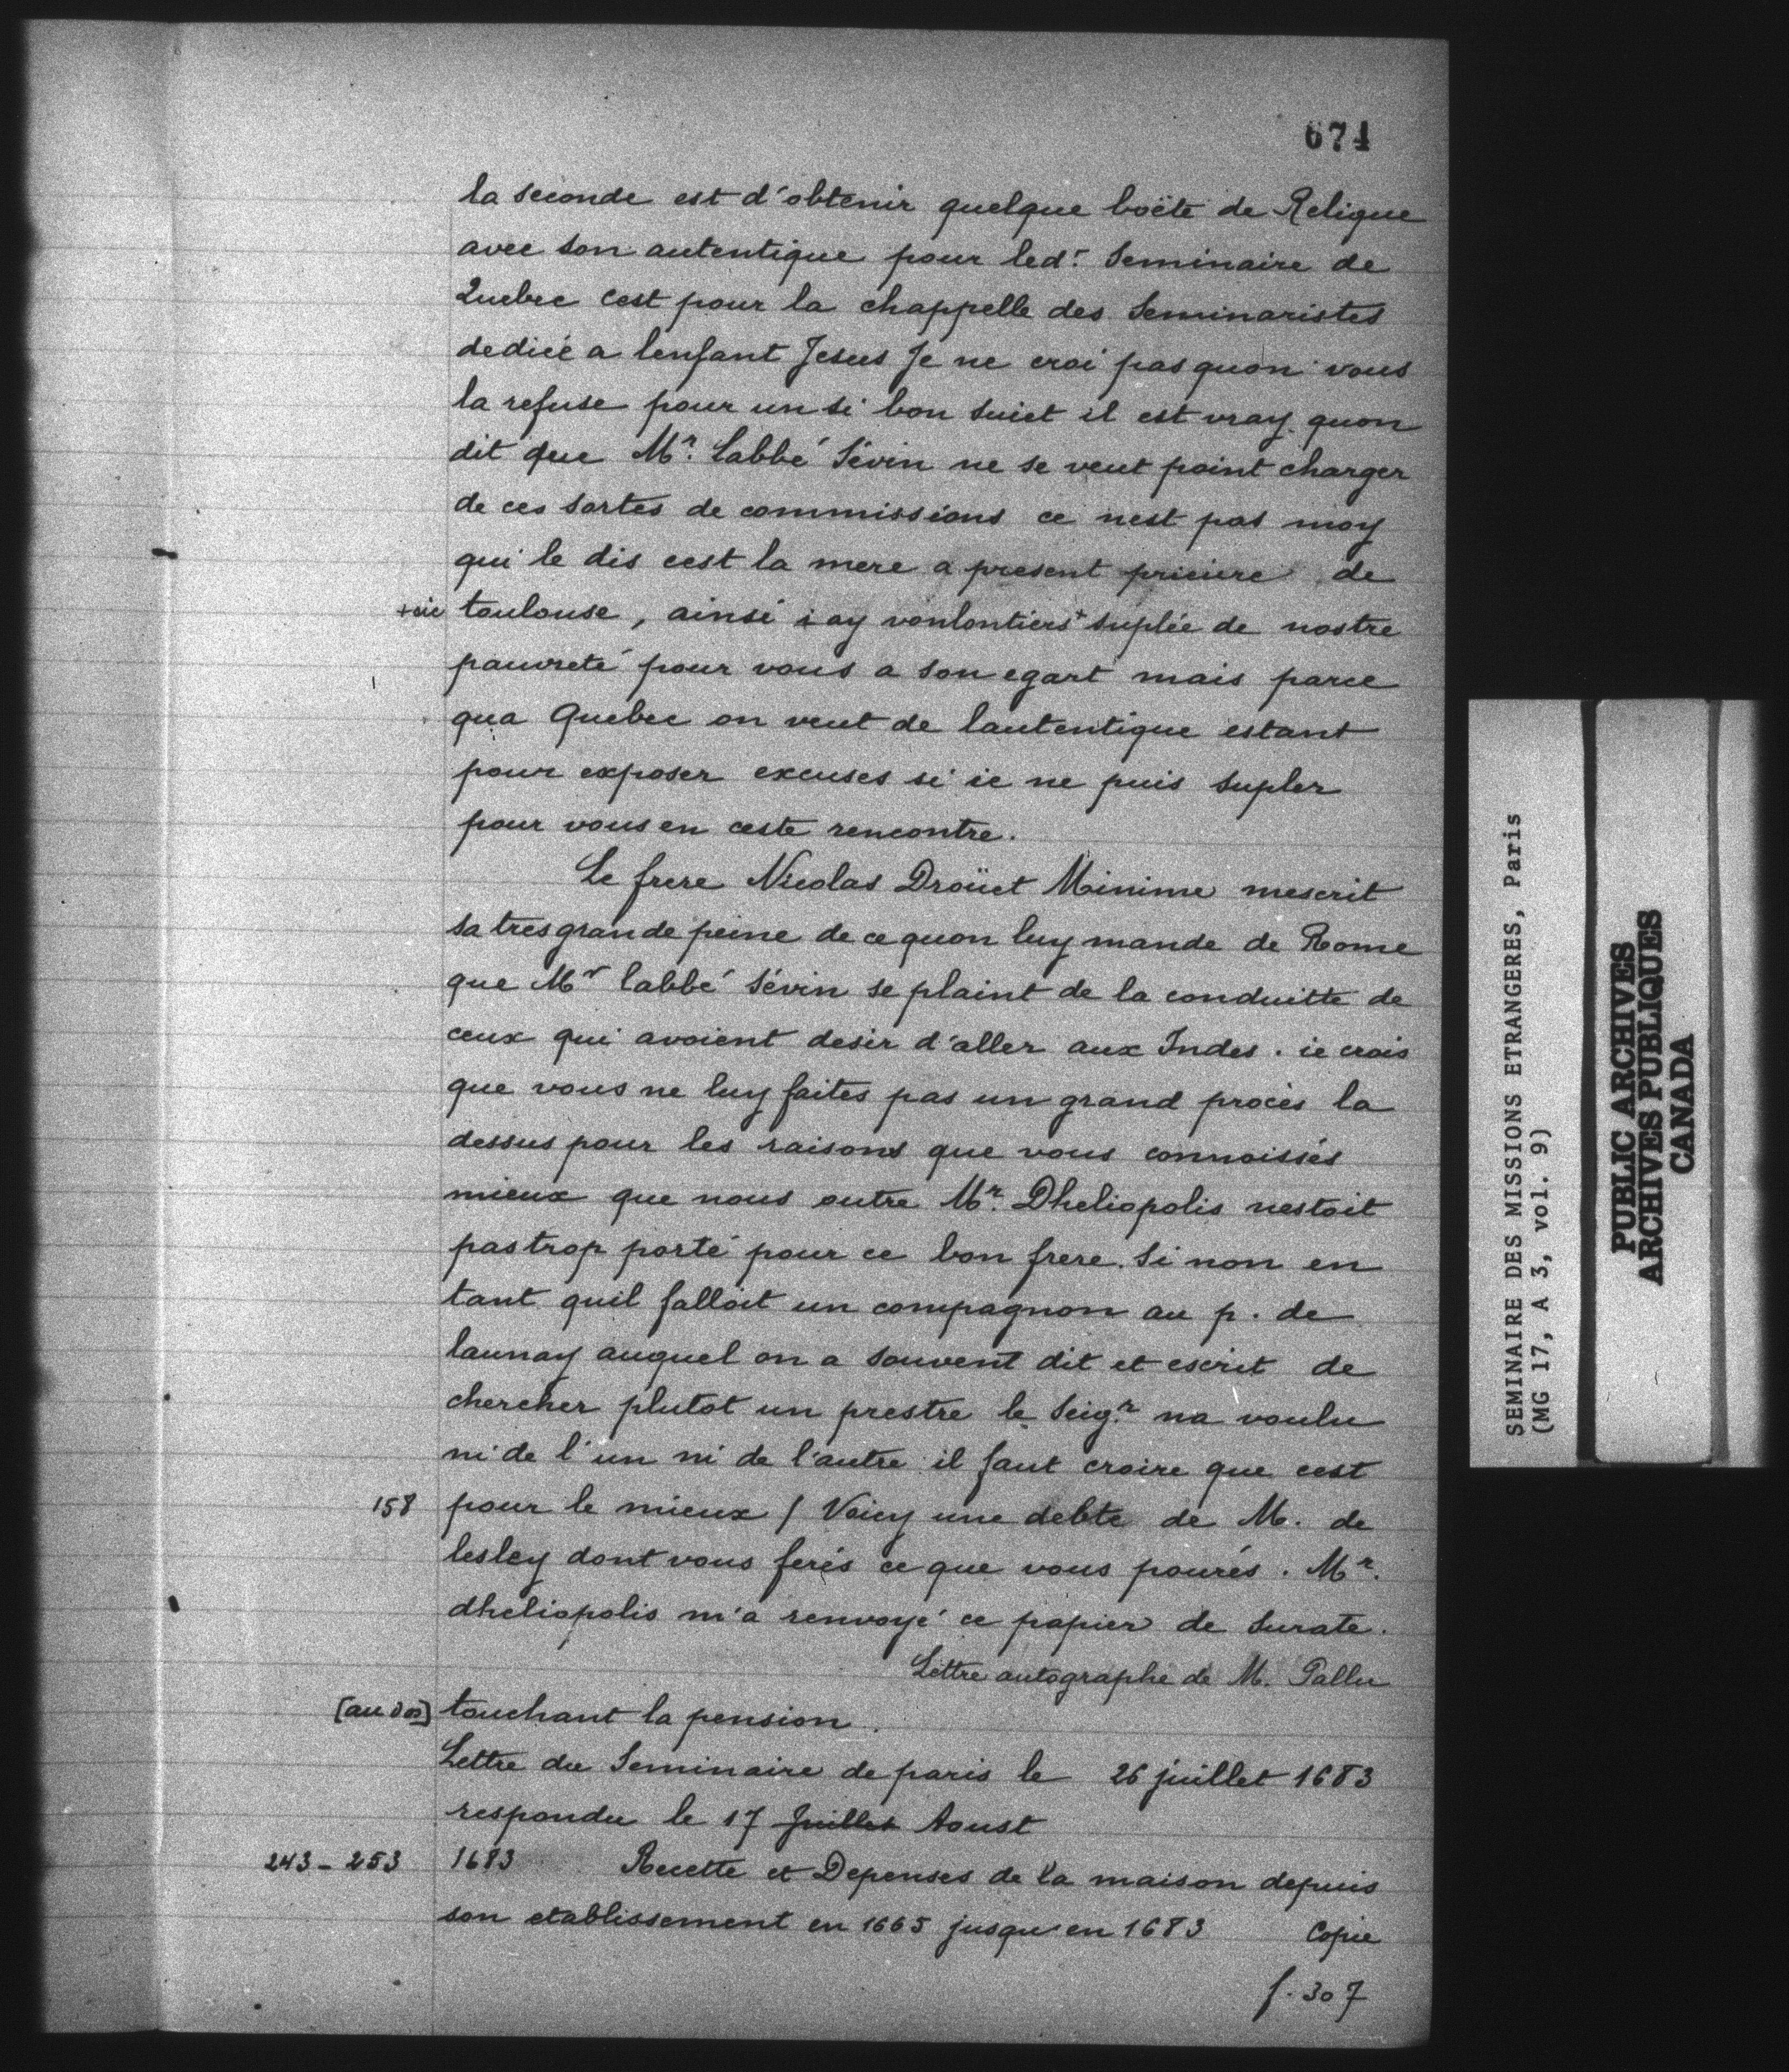 674
la seconde est d'obtenir quelque boëte de Relique
avec son autentique pour led.t Seminaire de
Quebec cest pour la chappelle des Seminaristes
dediée a lenfant Jesus Je ne croi pas quon vous
la refuse pour un si bon suiet il est vray quon
dit que Mr. Labbé Sévin ne se veut point charger
de ces sortes de commissions ce nest pas moy
qui le dis cest la mere a present prieure de
+sic toulouse, ainsi i ay vonlontiers+ suplée de nostre
pauvreté pour vous a son egart mais parce
qua Quebec on veut de lautentique estant
pour exposer excuses si ie ne puis supler
pour vous en ceste rencontre.
Le frere Nicolas Droüet Minime mescrit
sa tres grande peine de ce quon luy mande de Rome
que Mr labbé Sévin se plaint de la conduitte de
ceux qui avoient desir d'aller aux Indes. ie crois
que vous ne luy faites pas un grand procès la
dessus pour les raisons que vous connoissés
mieux que nous outre Mr. Dheliopolis nestoit
pas trop porté pour ce bon frere. Si non en
tant quil falloit un compagnon au p. de
launay auquel on a souvent dit et escrit de
chercher plutot un prestre le Seigr. na voulu
ni de l'un ni de l'autre il faut croire que cest
158 pour le mieux / Voicy une debte de M. de
lesley dont vous ferés ce que vous pourés. Mr.
dheliopolis m'a renvoyé ce papier de Surate.
Lettre autographe de M. Pallu
[au dos] touchant la pension.
Lettre du Seminaire de paris le 26 juillet 1683
respondu le 17 Juillet Aoust
243-253 1683 Recette et Depenses de la maison depuis
son etablissement en 1665 jusqu'en 1683 Copie
f. 307
SEMINAIRE DES MISSIONS ETRANGERES, Paris
(MG 17, A 3, vol. 9)
PUBLIC ARCHIVES
ARCHIVES PUBLIQUES
CANADA